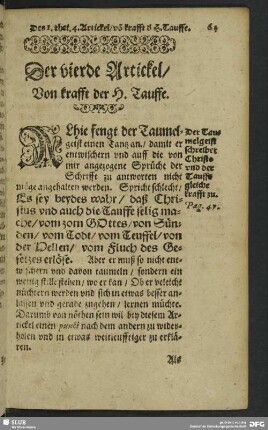 Des 1. thet. 4. Artickel/ vō krafft d H. Tauffe. 69
Der vierde Artickel/
Von krafft der H. Tauffe.
ALhie fengt der Taumel-
geist einen Tang an/ damit er
entwischen vnd auff die von
mir angezogene Sprüche der
Schrifft zu antworten nicht
müge angehalten werden. Spricht schlecht/
Es sey beydes wahr/ daß Chri-
stus vnd auch die Tauffe selig ma-
che/ vom zorn GOttes/ von Sün-
den/ vom Todt/ vom Teuffel/ von
der Hellen/ vom Fluch des Ge-
setzes erlöse. Aber er muß so nicht ent-
wischern vnd davon taumeln/ sondern ein
wenig stille stehen/ wo er kan/ Ob er veleicht
nüchtern werden vnd sich in etwas besser an-
lassen vnd gerade zugehen/ lernen müchte.
Darumb von nöthen sein wil bey diesem Ar-
tickel einen punct nach dem andern zu widerho-
holen vnd in etwas weitleufftiger zu erklä-
ren.
Als
Der Tau-
melgeist
schreibet
Christo
vnd der
Tauffe
gleiche
krafft zu.
Pag. 47.
SLUB
DFG